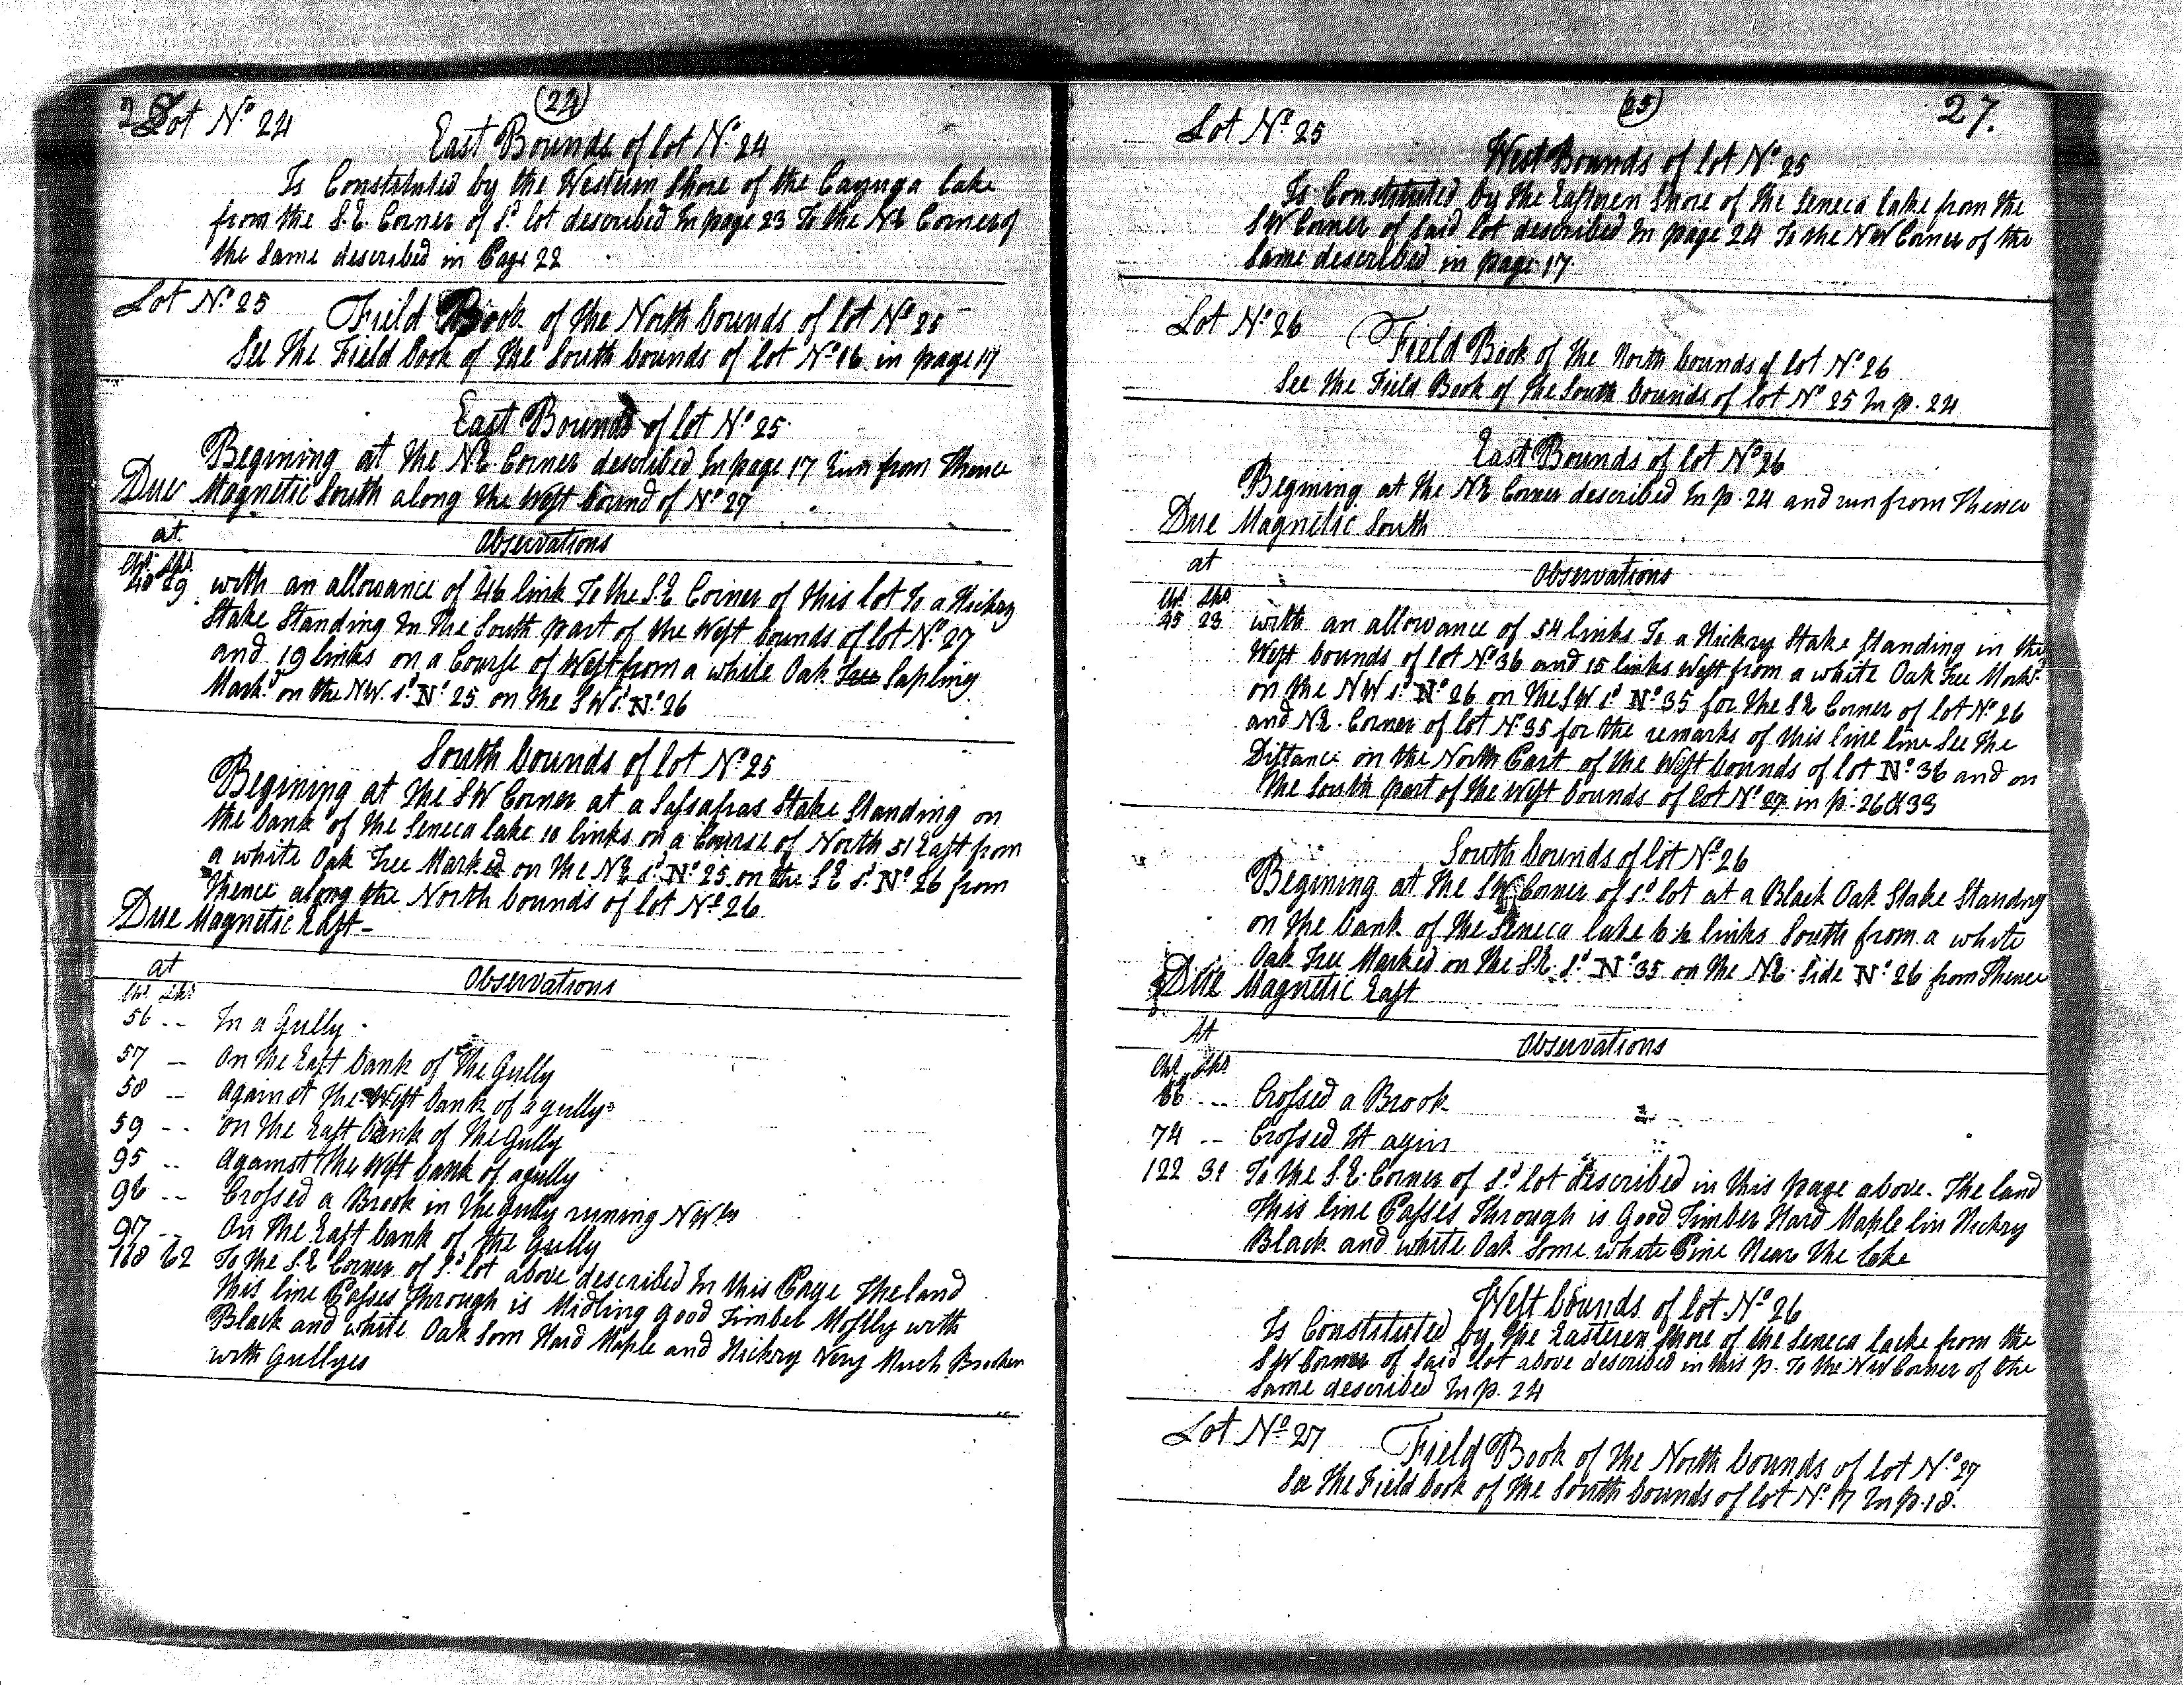 (24)
Lot Nº 24
East Bounds of lot Nº 24
Is Constituted by the Western Shore of the Cayuga lake
from the S.E. Corner of Sd lot described In page 23 To the NE Corner of
the Same described in Page 22
Lot Nº 25 Field Book of the North bounds of lot Nº 25
See the Field book of the South bounds of lot Nº 16 in page 17
East Bounds of lot Nº 25
Begining at the NE Corner described In page 17 Run from Thence
Due Magnetic South along the West bound of Nº 27
at Observations
Chs Lks
40 29 with an allowance of 46 link To the S.E Corner of this lot To a Hickry
Stake Standing In the South part of the West bounds of lot Nº 27
and 19 links on a Course of West from a white Oak Tree Sapling
Markd on the NW. Sd Nº 25 on the SW Sd Nº 26
South bounds of lot Nº 25
Begining at the SW Corner at a Sassafras Stake Standing on
the bank of the Seneca lake 10 links on a Course of North 51 East from
a white Oak Tree Marked on the NE Sd Nº 25 on the SE Sd Nº 26 from
Thence along the North bounds of lot Nº 26
Due Magnetic East -
at Observations
Chs Lks
56 -- In a Gully
57 -- On the East bank of the Gully
58 -- against the West bank of a gully
59 -- on the East bank of the Gully
95 -- against the West bank of a gully
96 -- Crossed a Brook in the gully runing NWly
97 -- On the East bank of the Gully
118 62 To the S.E Corner of Sd lot above described In this Page The land
this line Passes Through is Midling good Timber Mostly with
Black and white Oak Som Hard Maple and Hickry Very Much Broken
with Gullyes
(25) 27.
Lot Nº 25
West Bounds of lot Nº 25
Is Constituted by the Easteren Shore of the Seneca lake from the
SW Corner of Said lot described In page 24 To the NW Corner of the
Same described in page 17
Lot Nº 26 Field Book of the North bounds of lot Nº 26
See the Field Book of the South bounds of lot Nº 25 In p. 24
East Bounds of lot Nº 26
Begining at the NE Corner described In p. 24 and run from Thence
Due Magnetic South
at Observations
Chs Lks
45 23 with an allowance of 54 links To a Hickry Stake Standing in the
West bounds of lot Nº 36 and 15 links West from a white Oak Tree Markd
on the NW Sd Nº 26 on the SW Sd Nº 35 for the SE Corner of lot Nº 26
and NE. Corner of lot Nº 35 for the remarks of this line line See the
Distance in the North Part of the West bounds of lot Nº 36 and on
the South part of the West bounds of lot Nº 27 in p. 26 & 33
South bounds of lot Nº 26
Begining at the SW Corner of Sd lot at a Black Oak Stake Standing
on the bank of the Seneca lake 6 ½ links South from a white
Oak Tree Marked on the SE. Sd Nº 35 on the NE Side Nº 26 from Thence
Due Magnetic East
At Observations
Chs Lks
66 --- Crossed a Brook
74 -- Crossed It agin
122 31 To the S.E. Corner of Sd lot described in this page above. The land
this line Passes Through is Good Timber Hard Maple lin Hickry
Black and white Oak Some white Pine Near the lake
West bounds of lot Nº 26
Is Constituted by the Easteren Shore of the Seneca lacke from the
SW Corner of Said lot above described in this p. To the NW Corner of the
Same described In p. 24
Lot Nº 27 Field Book of the North bounds of lot Nº 27
See the Field book of the South bounds of lot Nº 17 In p. 18.